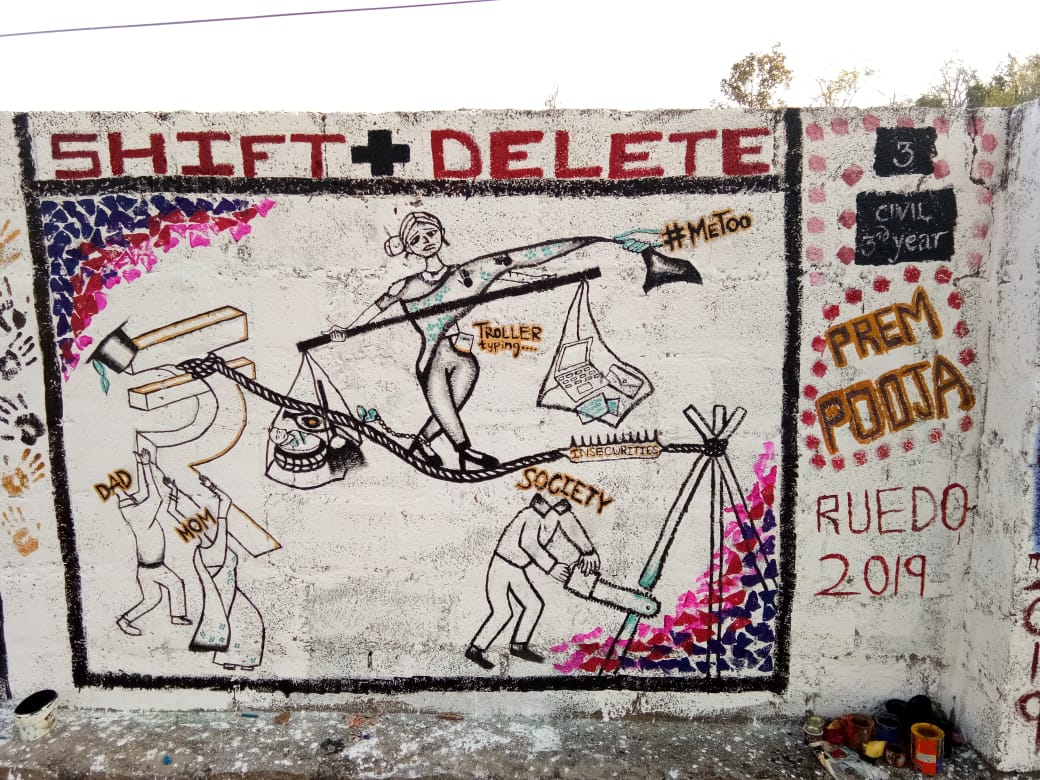 SHIFT + DELETE
#MeToo
TROLLER
typing....
INSECURITIES
SOCIETY
DAD
MOM
3
CIVIL
3rd year
PREM
POOJA
RUEDO
2019
2019